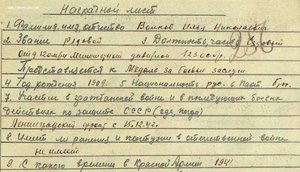 Наградной лист
1. Фамилия, имя, отчество Волков Илья Николаевич
2. Звание рядовой 3. Должность, часть Ездовой
дивизиона 125 осбр.
Представляется к Медале За боевые заслуги
4. Год рождения 1909. 5. Национальность рус. 6. Парт.
7. Участие в гражданской войне и в последующих боевых
действиях по защите СССР (где, когда)
Ленинградский фронт с 15.12.42г.
8. Имеет ли ранения и контузии в отечественной войне
не имеет
9. С какого времени в Красной Армии 1941